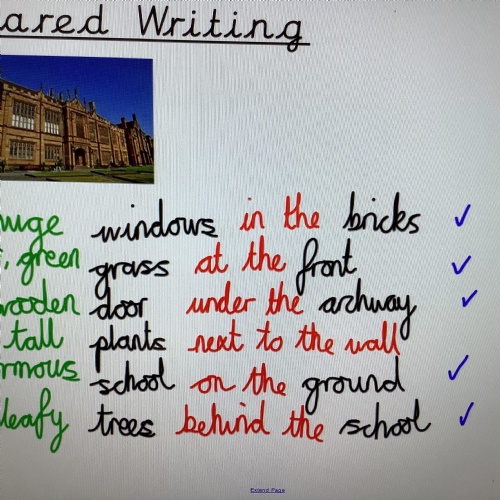 ared Writing
huge windows in the bricks ✓
, green grass at the front ✓
wooden door under the archway ✓
tall plants next to the wall
rmous school on the ground ✓
leafy trees behind the school ✓
Extend Page